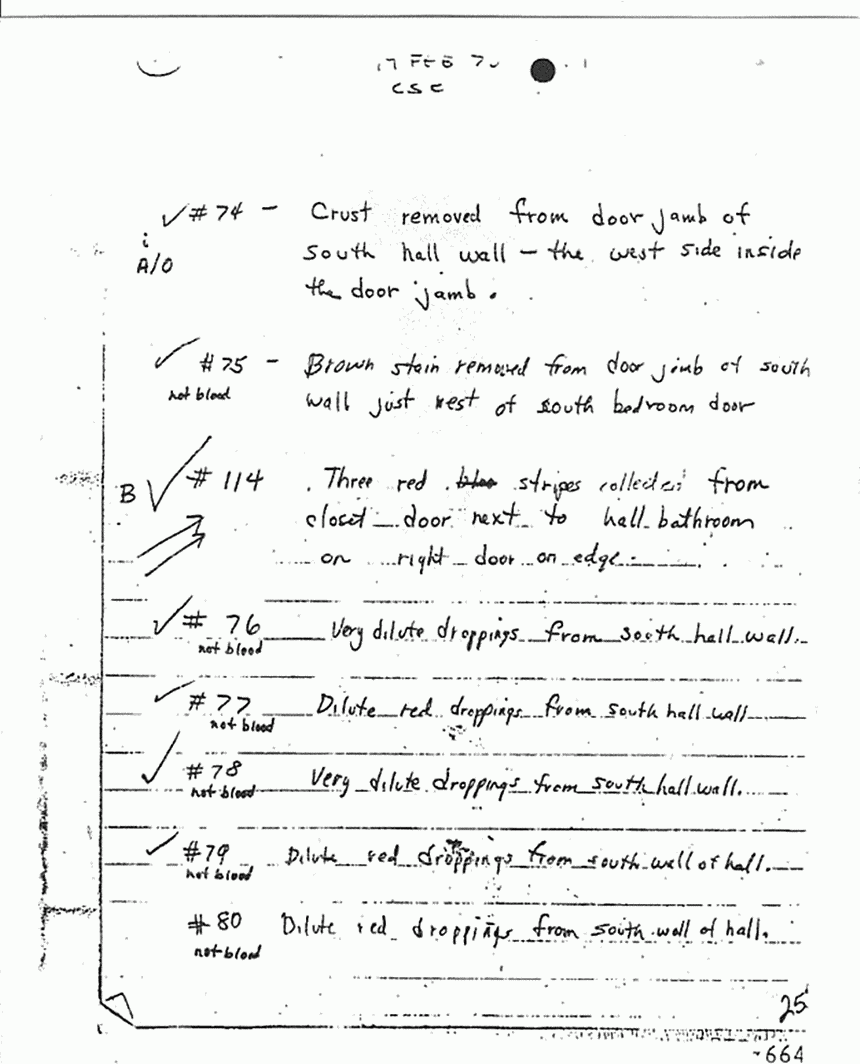 17 FEB 70
CSC
✓ #74 - Crust removed from door jamb of
i
A/O
south hall wall - the west side inside
the door jamb.
✓ #75 - Brown stain removed from door jamb of south
not blood
wall just west of south bedroom door
B ✓ #114 . Three red stripes collected from
closet door next to hall bathroom
on right door on edge.
✓ #76 Very dilute droppings from south hall wall.
not blood
✓ #77 Dilute red droppings from south hall wall
not blood
✓ #78 Very dilute droppings from south hall wall.
not blood
✓ #79 Dilute red droppings from south wall of hall.
not blood
#80 Dilute red droppings from south wall of hall.
not blood
25
-664